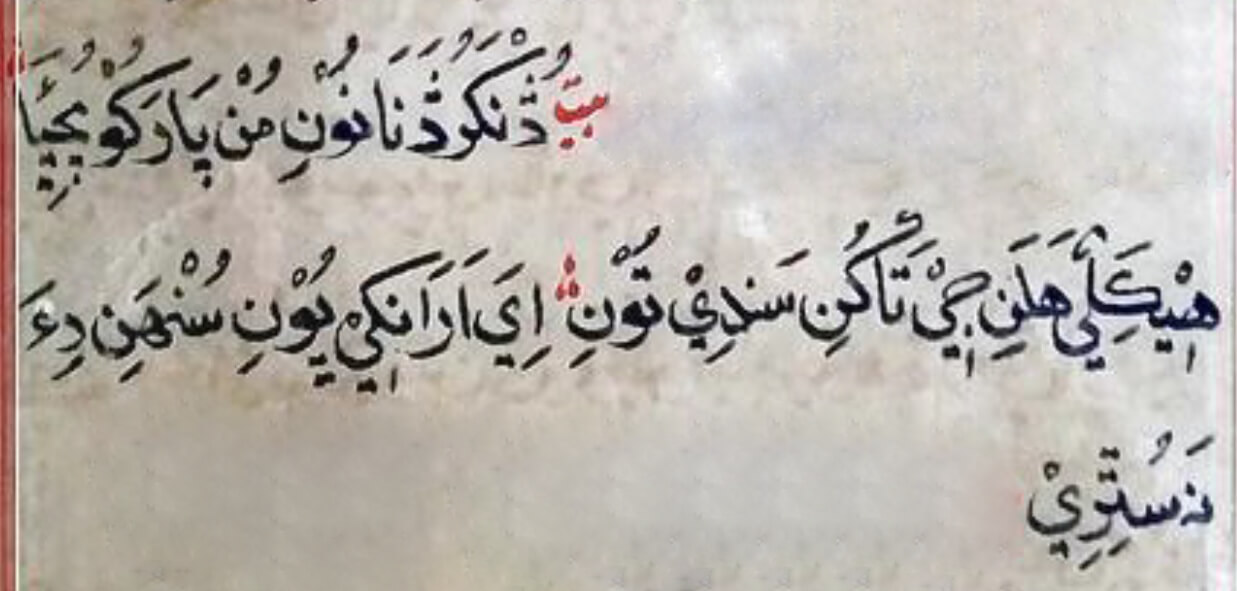 بيت ڏُنْگَرُ ڏَنَانُوْنِ مُنْ پَارَکُوْ بِجِيَّا
هِيْکَلِيِّ هَلَنِ جِيْ تَاکُنِ سَندِيْ تُوْنِ اِيَ اَرَانْکِيْ پُوْنِ سُنْهَنِ دِءَ
نَسُتِرِيْ